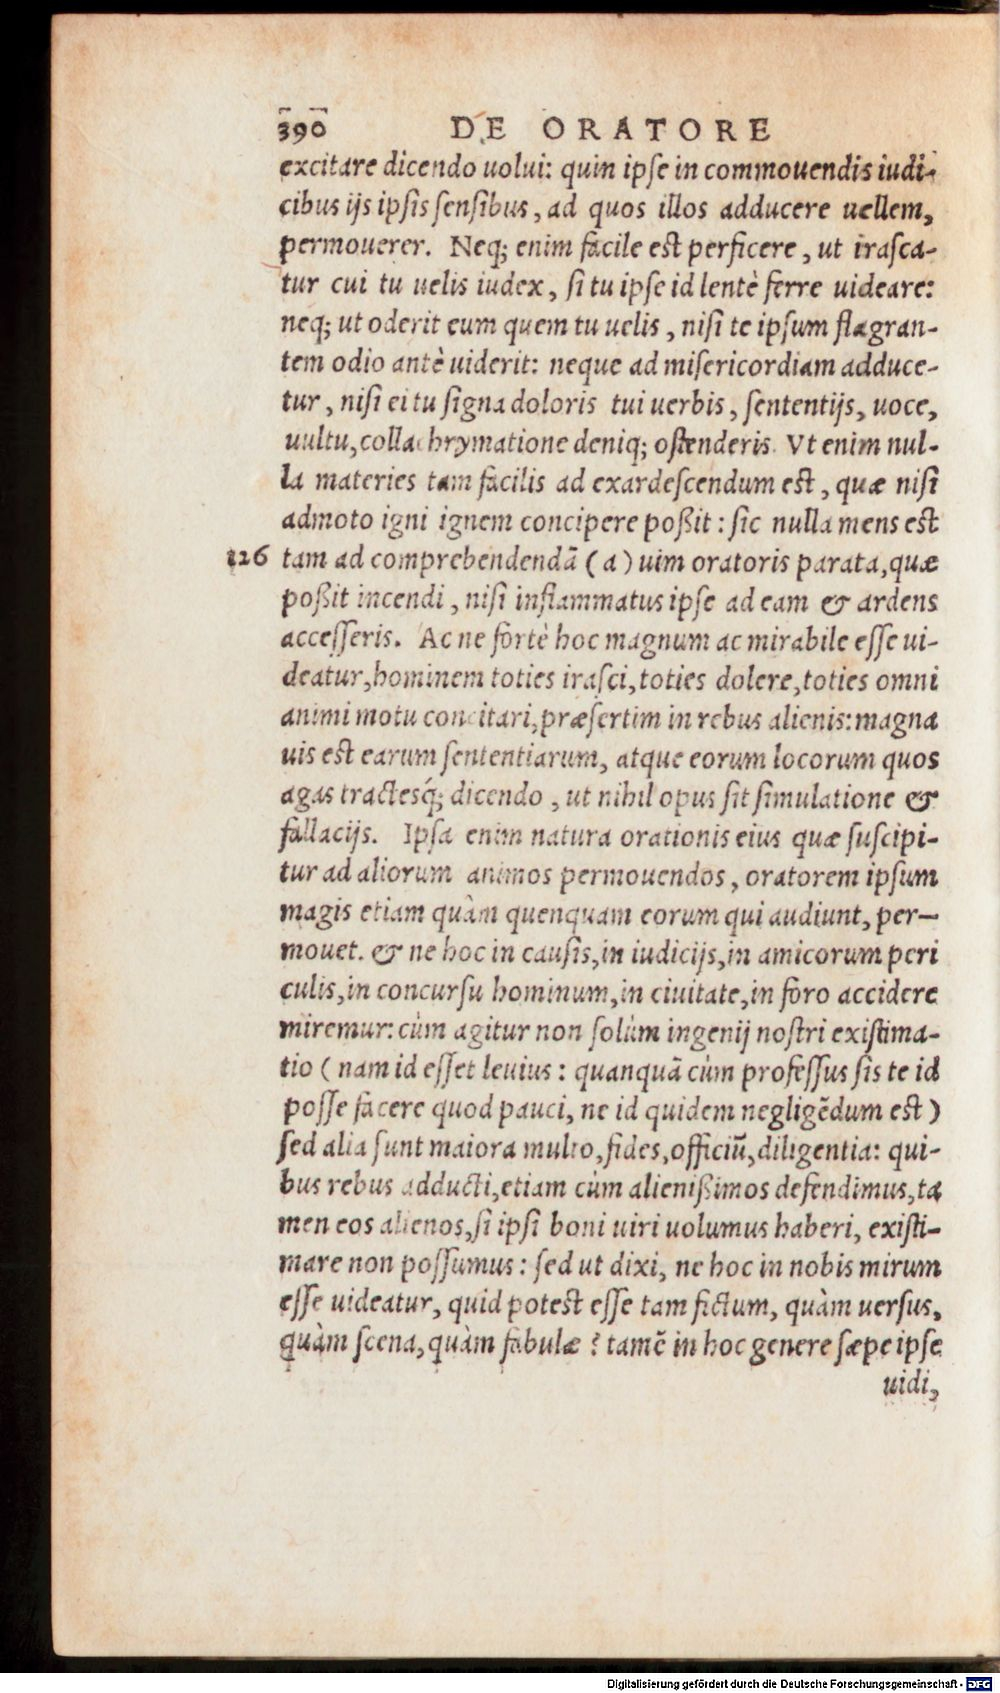 390 DE ORATORE
excitare dicendo uolui: quin ipse in commouendis iudi-
cibus ijs ipsis sensibus, ad quos illos adducere uellem,
permouerer. Neq; enim facile est perficere, ut irasca-
tur cui tu uelis iudex, si tu ipse id lentè ferre uideare:
neq; ut oderit eum quem tu uelis, nisi te ipsum flagran-
tem odio antè uiderit: neque ad misericordiam adduce-
tur, nisi ei tu signa doloris tui uerbis, sententijs, uoce,
uultu, collachrymatione deniq; ostenderis. Vt enim nul-
la materies tam facilis ad exardescendum est, quæ nisi
admoto igni ignem concipere poßit: sic nulla mens est
126 tam ad comprehendendā (a) uim oratoris parata, quæ
poßit incendi, nisi inflammatus ipse ad eam & ardens
accesseris. Ac ne fortè hoc magnum ac mirabile esse ui-
deatur, hominem toties irasci, toties dolere, toties omni
animi motu concitari, præsertim in rebus alienis: magna
uis est earum sententiarum, atque eorum locorum quos
agas tractesq́; dicendo, ut nihil opus sit simulatione &
fallacijs. Ipsa enim natura orationis eius quæ suscipi-
tur ad aliorum animos permouendos, oratorem ipsum
magis etiam quàm quenquam eorum qui audiunt, per-
mouet. & ne hoc in causis, in iudicijs, in amicorum peri
culis, in concursu hominum, in ciuitate, in foro accidere
miremur: cùm agitur non solùm ingenij nostri existima-
tio (nam id esset leuius: quanquā cùm professus sis te id
posse facere quod pauci, ne id quidem negligēdum est)
sed alia sunt maiora multo, fides, officiū, diligentia: qui-
bus rebus adducti, etiam cùm alienißimos defendimus, ta
men eos alienos, si ipsi boni uiri uolumus haberi, existi-
mare non possumus: sed ut dixi, ne hoc in nobis mirum
esse uideatur, quid potest esse tam fictum, quàm uersus,
quàm scena, quàm fabulæ? tamē in hoc genere sæpe ipse
uidi,
Digitalisierung gefördert durch die Deutsche Forschungsgemeinschaft - DFG